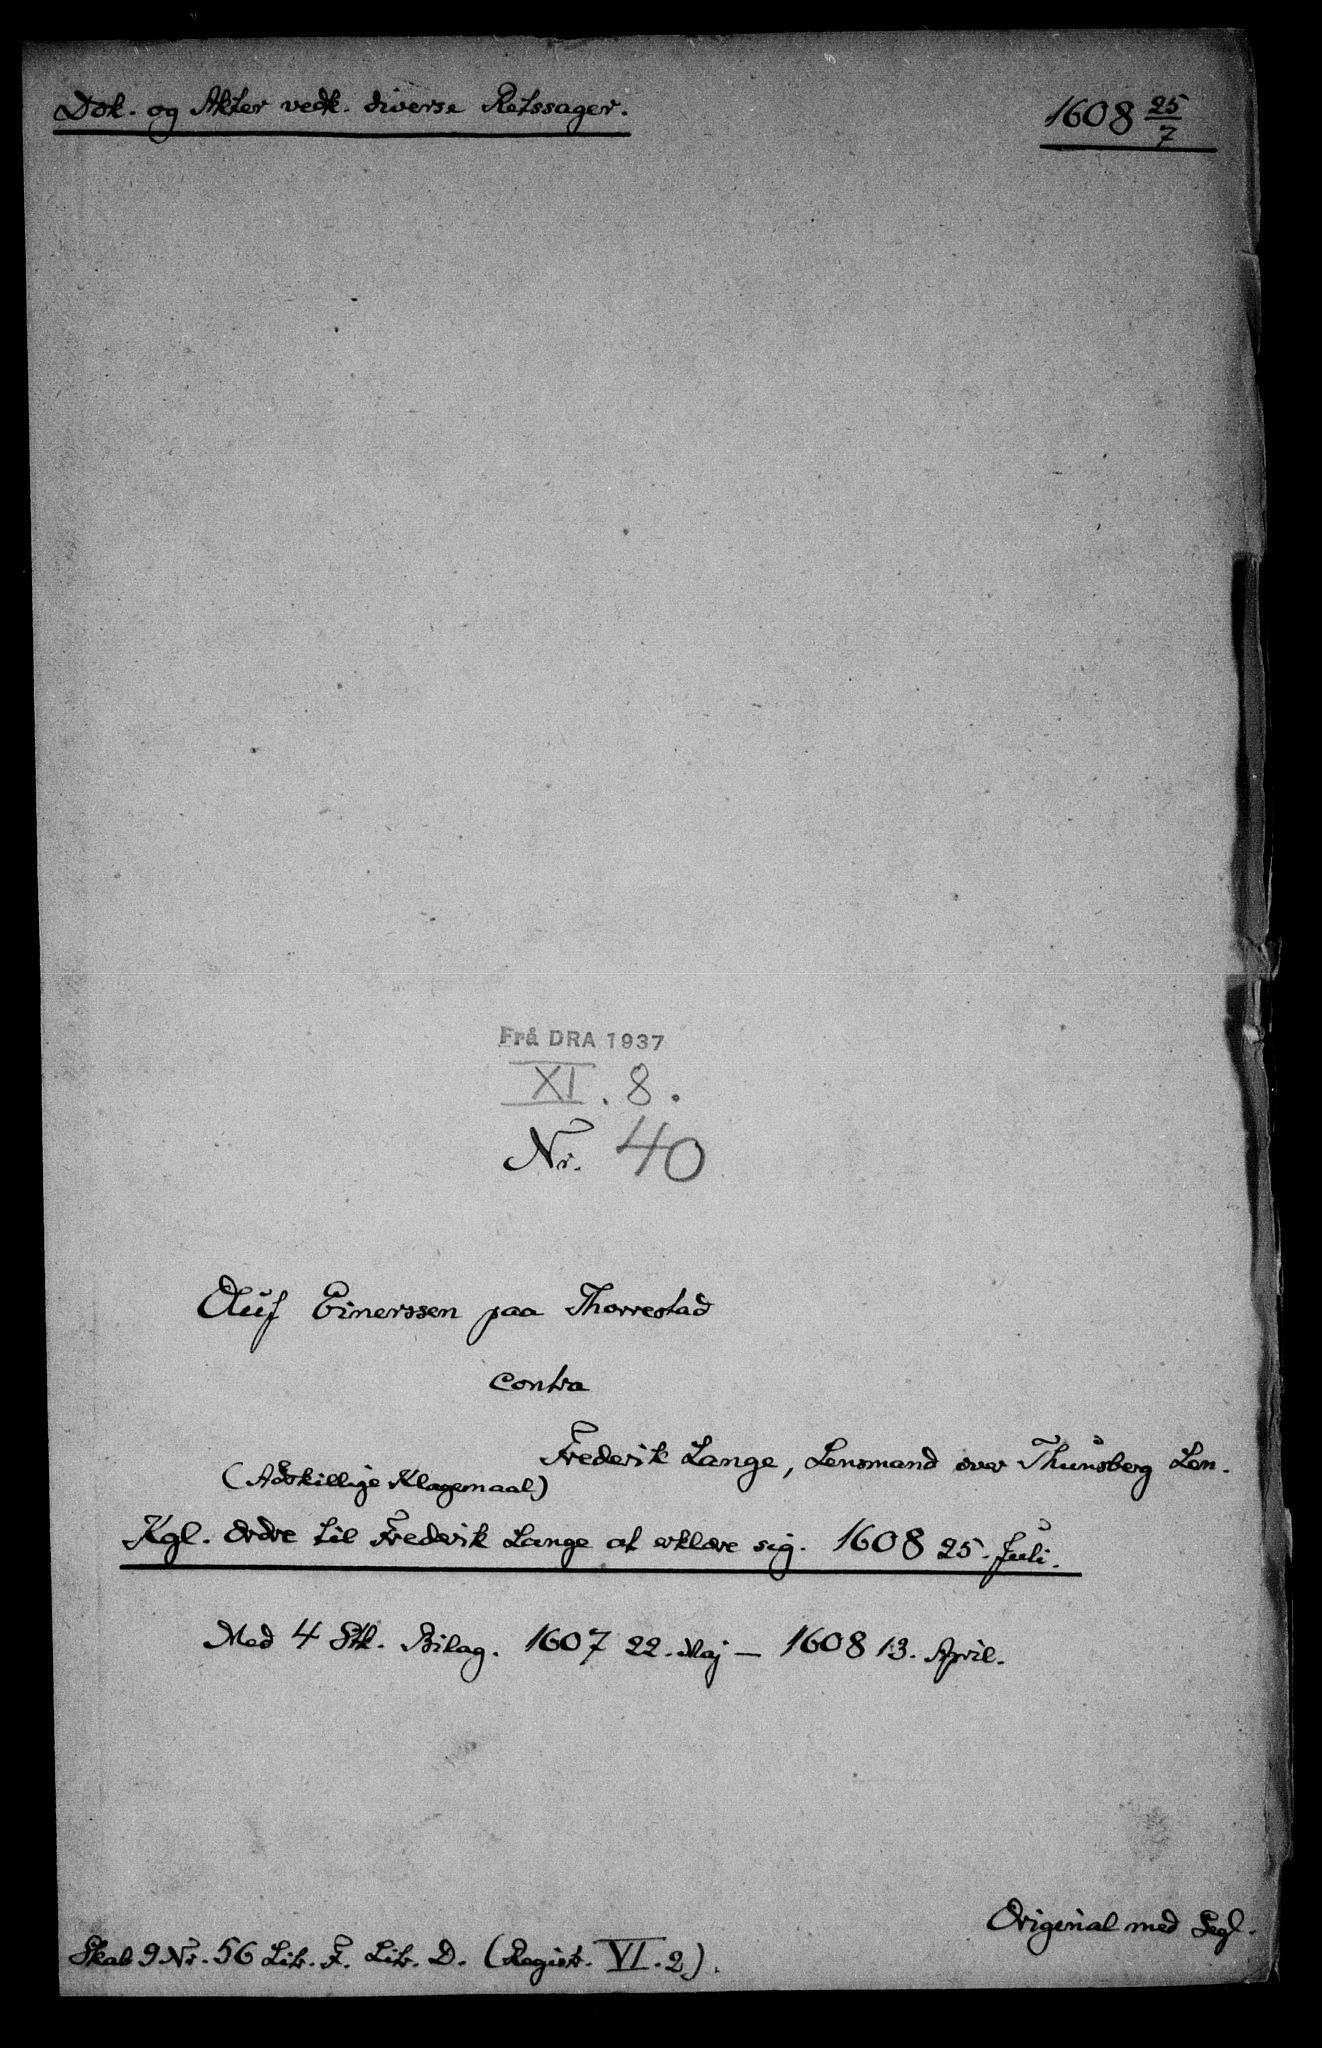 Dok. og Akter vedk. diverse Retssager.
1608 25/7
Frå DRA 1937
XI. 8.
Nr. 40
Oluf Einerssen paa Thorrestad
contra
Frederik Lange, Lensmand over Thunsberg Len.
(Adskillige Klagemaal)
Kgl. Ordre til Frederik Lange at erklære sig. 1608 25. Juli.
Med 4 Stk. Bilag. 1607 22. Maj — 1608 13. April.
Original med Segl.
Skab 9 Nr. 56 Litr. F. Litr. D. (Registr. VI. 2).